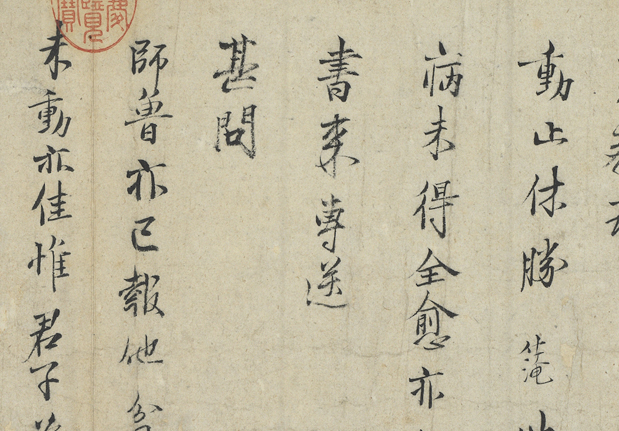 動止休勝
病未得全愈亦
書來專送
甚問
師魯亦已報他
未動亦佳惟君子